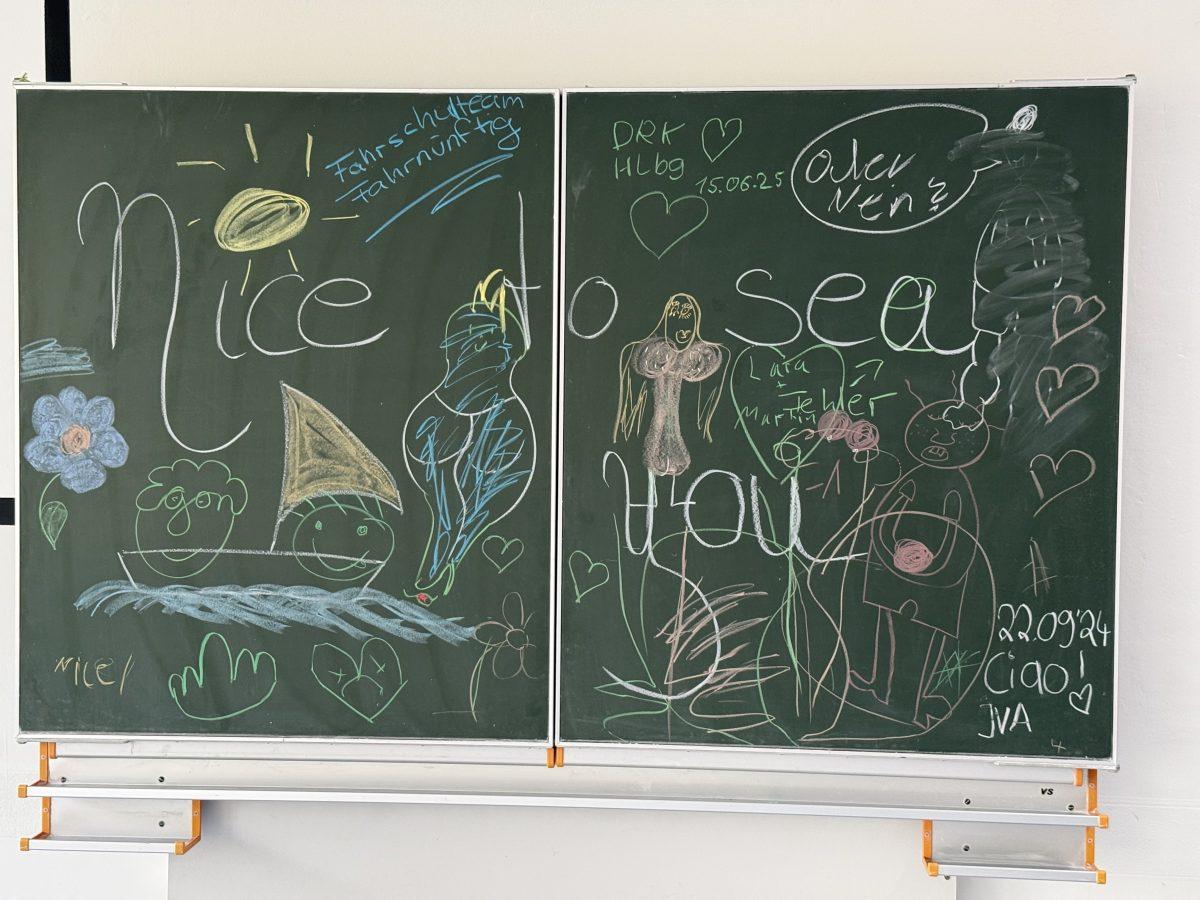 Fahrschulteam
Fahrnünftig
DRK
HLbg
15.06.25
Oder
Nein?
Nice to sea
you
Lara
+
Martin
Fehler
-1
Egon
Nice!
22.09.24
Ciao!
JVA
VS